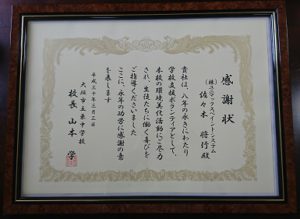 感謝状
(株)ユニックスペイントシステム
佐々木 将行 殿
貴社は、八年の永きにわたり
学校支援ボランティアとして、
本校の環境美化活動にご尽力
され、生徒たちに働く喜びを
ご指導くださいました
ここに、永年の功労に感謝の意
を表します
平成三十年三月二日
大垣市立東中学校
校長 山本 学